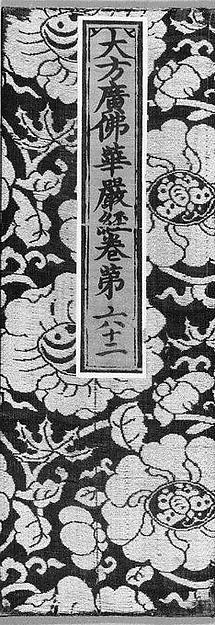 大方廣佛華嚴經卷第六十二